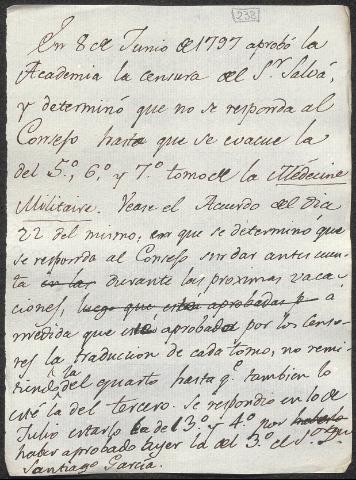 238
En 8 de Junio de 1797 aprobó la
Academia la censura del S.r Salvá,
y determinó que no se responda al
Consejo hasta que se evacue la
del 5.º, 6.º y 7.º tomo de la Médecine
Militaire. Vease el Acuerdo del dia
22 del mismo, en que se determinó que
se responda al Consejo sin dar antes cuen-
ta en las durante las proximas vaca-
ciones, luego que esten aprobadas p à
medida que este aprobada por los censo-
res la traducion de cada tomo, no remi-
tiendo la del quarto hasta q.e tambien lo
esté la del tercero. Se respondió en 10 de
Julio estarlo la del 3.º y 4.º por haberlo
haber aprobado ayer la del 3.º el S.or D.n
Santiago Garcia.